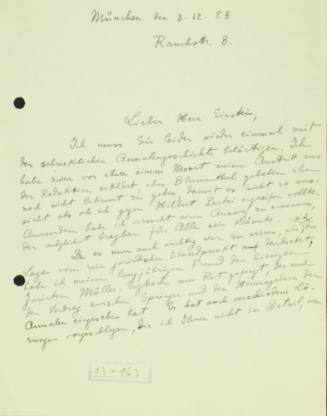 München den 3-12-28
Rauchstr. 8.
Lieber Herr Einstein,
Ich muss Sie leider wieder einmal mit
der schrecklichen Annalengeschichte belästigen. Ich
habe zwar vor etwa einem Monat meinen Austritt aus
der Redaktion erklärt, aber Blumenthal gebeten ihn
noch nicht bekannt zu geben damit es nicht so aus-
sieht als ob ich gegen Hilbert Partei ergreifen wollte.
Ausserdem habe ich versucht einen Ausweg zu
der möglichst tragbar für Alle sein könnte.
Da es nun auch wichtig war zu wissen, wie die
Lage vom rein juristischen Standpunkt aus
habe ich meinen langjährigen Freund den hiesigen
Juristen Müller- um Rat gefragt, der auch
den Vertrag zwischen Springer und den Herausgebern der
Annalen eingesehen hat. Er hat auch verschiedene Lö-
sungen vorgeschlagen, die ich Ihnen nicht im Detail,
13-163